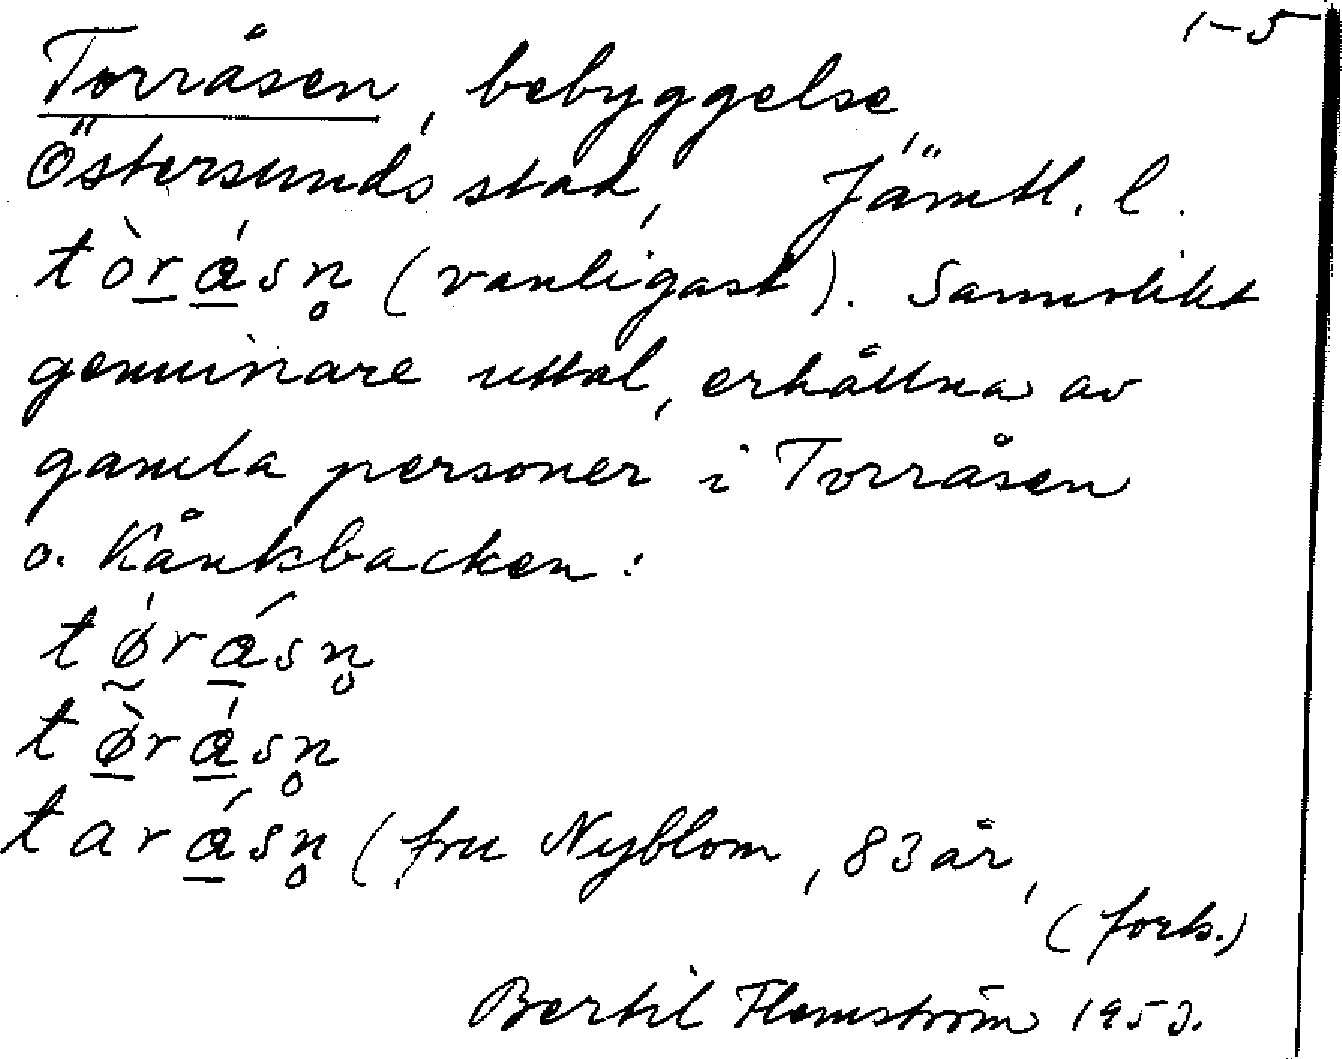 1-5
Torråsen, bebyggelse,
Östersunds stad, Jämtl. l.
tòråsn̥ (vanligast). Sannolikt
genuinare uttal, erhållna av
gamla personer i Torråsen
o. Kånkbacken:
tǿråsn̥
tø̀råsn̥
taråsn̥ (fru Nyblom, 83 år,
(forts.)
Bertil Flemström 1953.